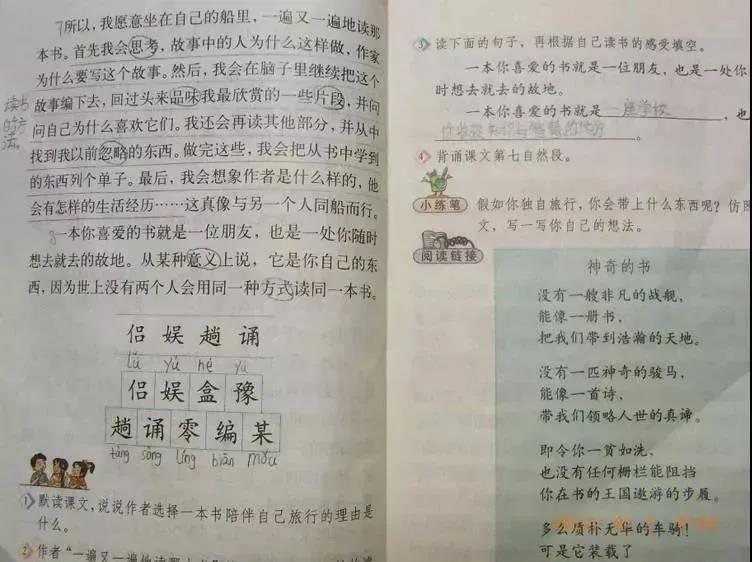 7所以，我愿意坐在自己的船里，一遍又一遍地读那
本书。首先我会思考，故事中的人为什么这样做，作家
为什么要写这个故事。然后，我会在脑子里继续把这个
故事编下去，回过头来品味我最欣赏的一些片段，并问
问自己为什么喜欢它们。我还会再读其他部分，并从中
找到我以前忽略的东西。做完这些，我会把从书中学到
的东西列个单子。最后，我会想象作者是什么样的，他
会有怎样的生活经历……这真像与另一个人同船而行。
8一本你喜爱的书就是一位朋友，也是一处你随时
想去就去的故地。从某种意义上说，它是你自己的东
西，因为世上没有两个人会用同一种方式读同一本书。
读书
的方
法
侣 娱 趟 诵
lǚ yú hé yù
侣 娱 盒 豫
趟 诵 零 编 某
tàng sòng líng biān mǒu
1 默读课文，说说作者选择一本书陪伴自己旅行的理由是
什么。
2 作者“一遍又一遍地读那
3 读下面的句子，再根据自己读书的感受填空。
一本你喜爱的书就是一位朋友，也是一处你
时想去就去的故地。
一本你喜爱的书就是 一座学校 ，也
4 背诵课文第七自然段。
小练笔 假如你独自旅行，你会带上什么东西呢？仿照
文，写一写你自己的想法。
阅读链接
神奇的书
没有一艘非凡的战舰，
能像一册书，
把我们带到浩瀚的天地。
没有一匹神奇的骏马，
能像一首诗，
带我们领略人世的真谛。
即令你一贫如洗，
也没有任何栅栏能阻挡
你在书的王国遨游的步履。
多么质朴无华的车骑！
可是它装载了